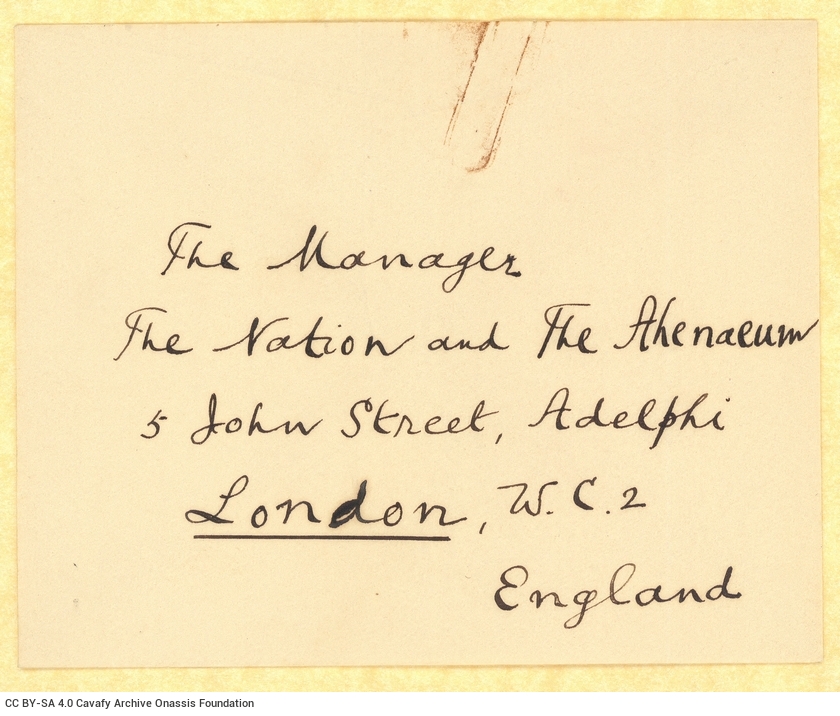 The Manager
The Nation and The Athenaeum
5 John Street, Adelphi
London, W.C.2
England
CC BY-SA 4.0 Cavafy Archive Onassis Foundation